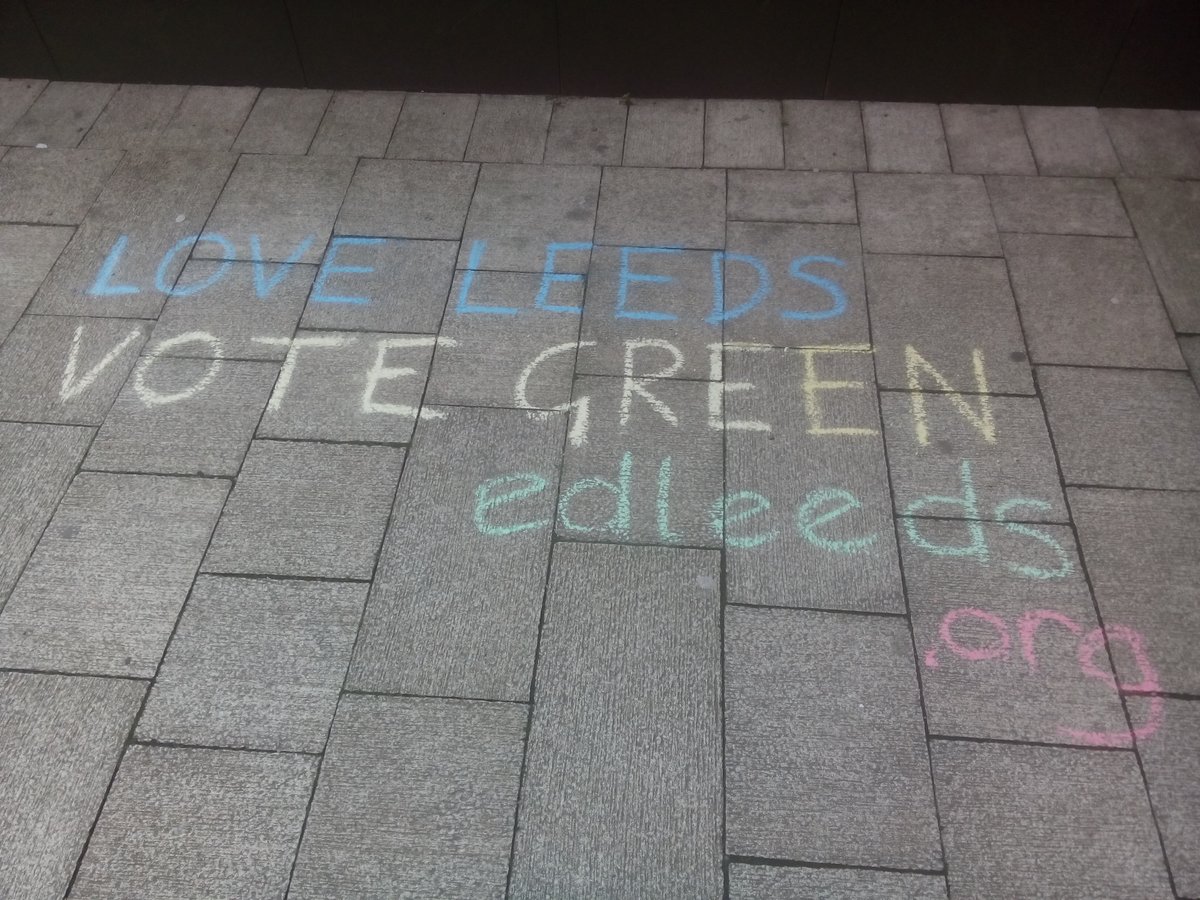 LOVE LEEDS
VOTE GREEN
edleeds
.org